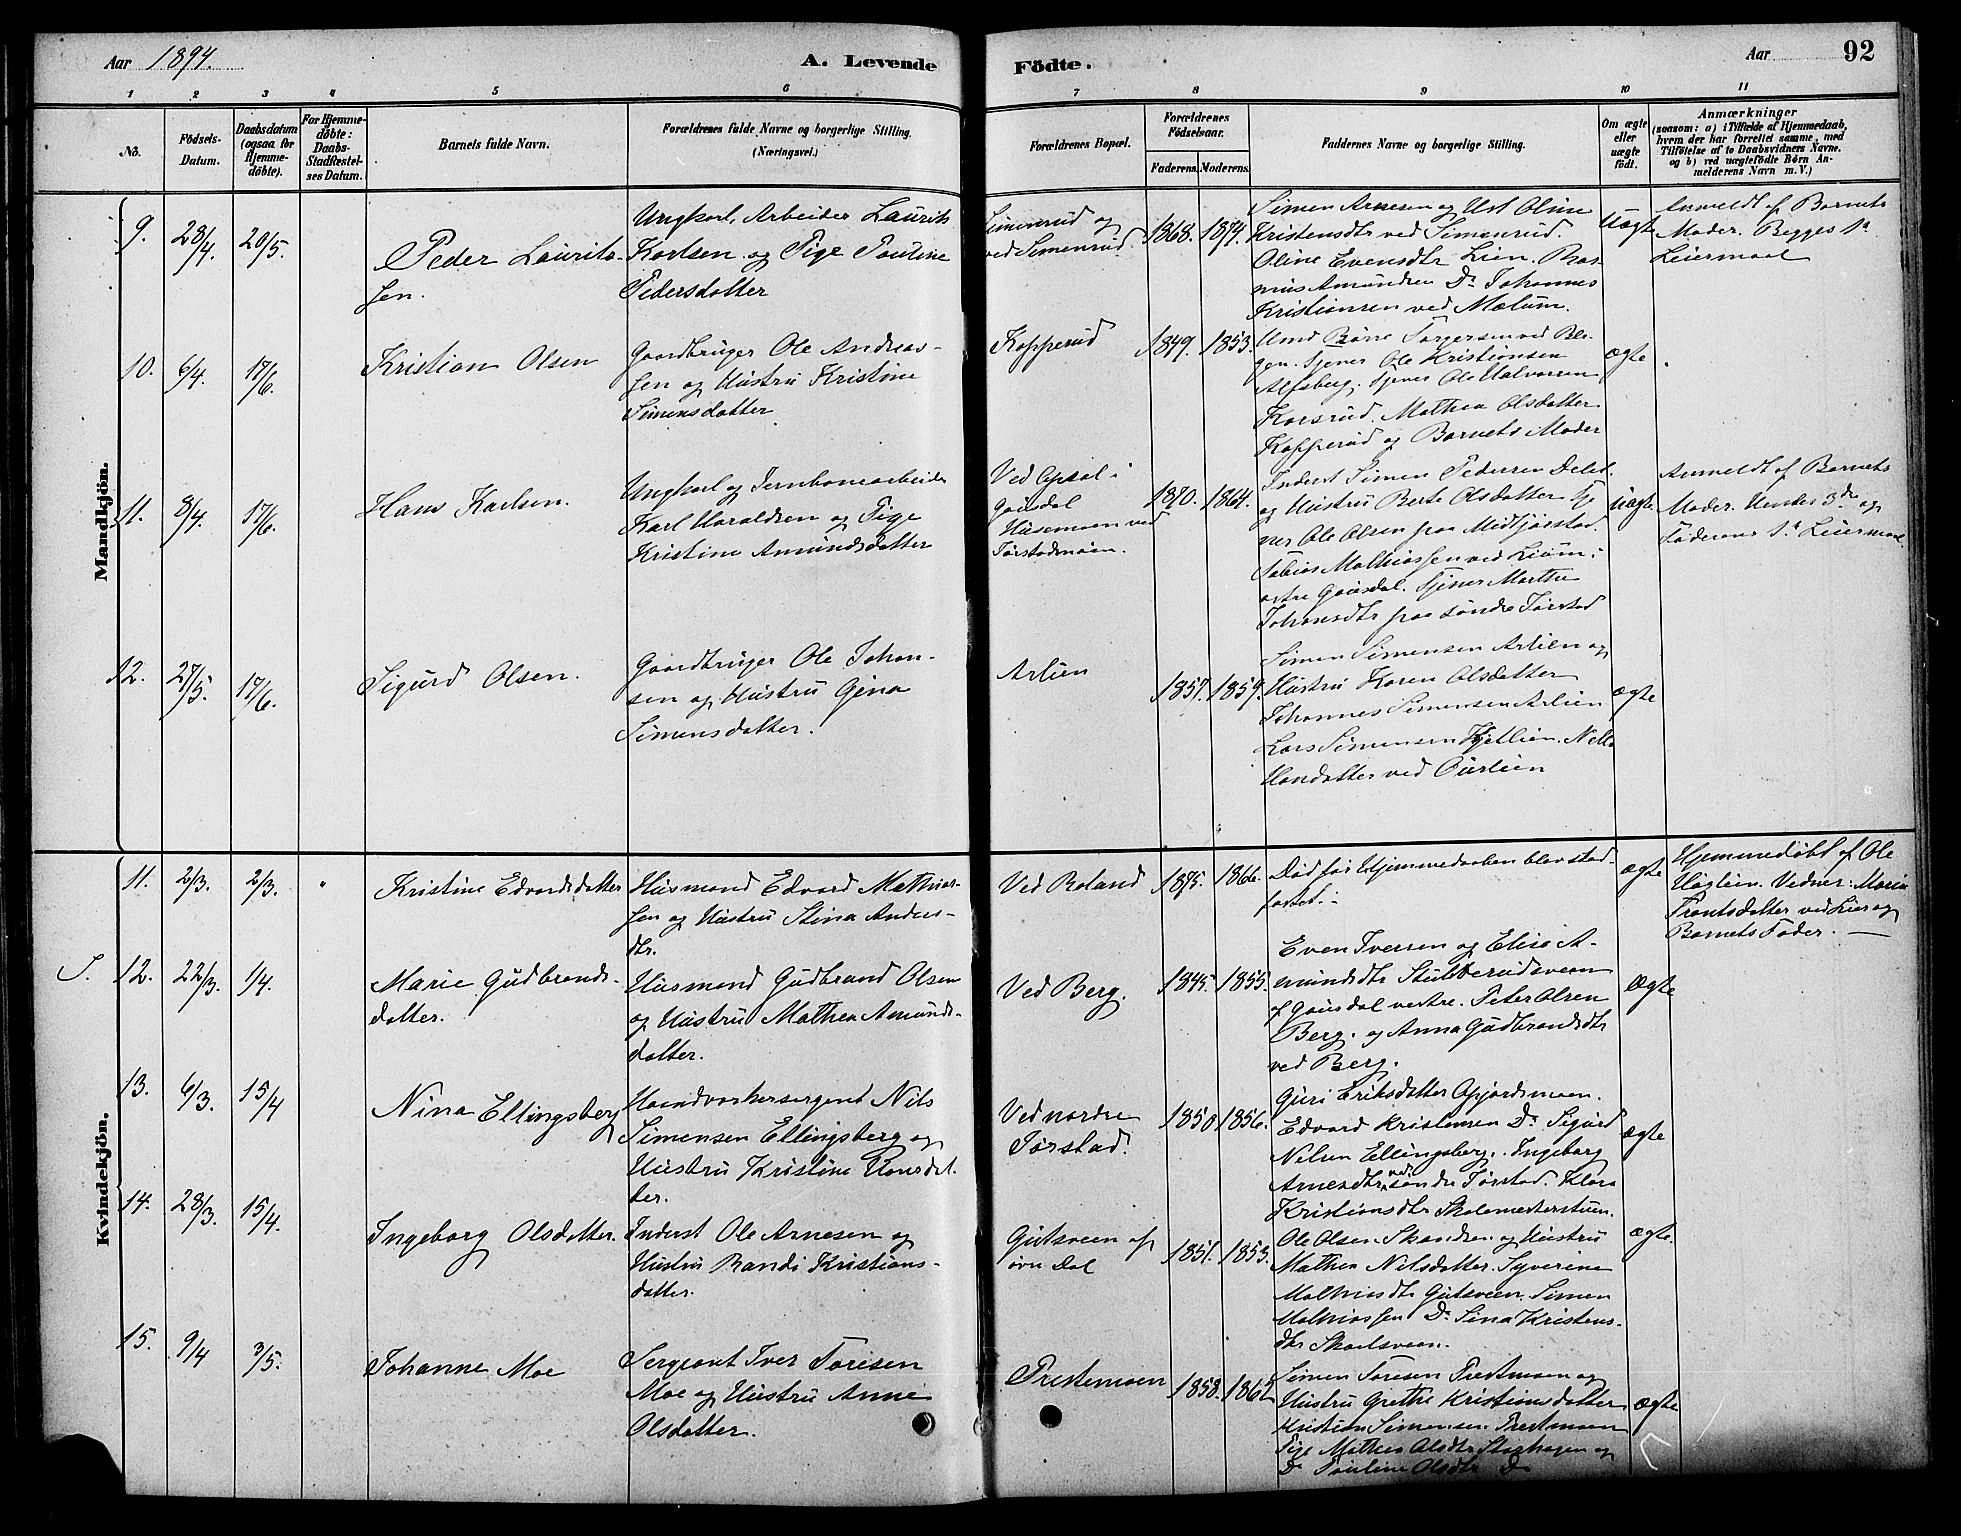 Aar 1894.
A. Levende
Födte.
Aar
92
1 2 3 4 5 6 7 8 9 10 11
No.
Födsels-
Datum.
Daabsdatum
(ogsaa for
Hjemme-
döbte).
For Hjemme-
döbte:
Daabs-
Stadfæstel-
ses Datum.
Barnets fulde Navn.
Forældrenes fulde Navne og borgerlige Stilling.
(Næringsvei.)
Forældrenes Bopæl.
Forældrenes
Födselsaar.
Faderens. Moderens.
Faddernes Navne og borgerlige Stilling.
Om ægte
eller
uægte
födt.
Anmærkninger
(saasom: a) i Tilfælde af Hjemmedaab,
hvem der har forrettet samme, med
Tilföielse af to Daabsvidners Navne,
og b) ved uægtefödte Börn An-
melderens Navn m. V.)
Mandkjön.
9. 28/4. 20/5.
Peder Laurits-
sen.
Ungkarl, Arbeider Laurits
Karlsen og Pige Pauline
Pedersdatter
Simenrud og
ved Simenrud.
1868. 1874.
Simen Arnesen og Ust Oline
Kristensdtr ved Simenrud.
Oline Evensdtr Lien. Ras-
mus Amundsen Do Johannes
Kristiansen ved Mælum.
Uægte
Anmeldt af Barnets
Moder. Begges 1ste
Leiermaal
10. 6/4. 17/6.
Kristian Olsen
Gaardbruger Ole Andreas-
sen og Hustru Kristine
Simensdatter
Kopperud
1849. 1853.
Børre Torgersen ved
Tjener Ole Kristiansen
Alfsberg. Tjener Ole Halvorsen
Korsrud. Mathea Olsdatter
Kopperud og Barnets Moder
ægte
11. 8/4. 17/6.
Hans Karlsen.
Ungkarl og Jernbanearbeider
Karl Haraldsen og Pige
Kristine Amundsdatter
Ved i
Gausdal
Husemoen ved
Tørstadmoen.
1870. 1864.
Inderst Simen Pedersen
og Hustru Berte Olsdatter Tje
ner Ole Olsen fra Midttjørstad.
Tobias Mathiassen ved Lium i
østre Gausdal. Tjener Marthe
Johansdtr fra søndre Tørstad
uægte
Anmeldt af Barnets
Moder. Hendes 3de og
Faderens 1ste Leiermaal.
12. 27/5. 17/6.
Sigurd Olsen.
Gaardbruger Ole Johan-
sen og Hustru Gina
Simensdatter.
Arlien
1857. 1859.
Simen Simensen Arlien og
Hustru Karen Olsdatter
Johannes Simensen Arlien
Lars Simensen Kjetlien. Nella
Hansdatter ved Aurlien
ægte
Kvindekjön.
11. 2/3. 2/3.
Kristine Edvardsdatter
Husmand Edvard Mathias-
sen og Hustru Stina Anders-
dtr.
Ved Roland
1875. 1866.
Død før Hjemmedaaben blev stad-
fæstet.
ægte
Hjemmedøbt af Ole
Høglien. Vidner: Maria
Frantsdatter ved Lier og
Barnets Fader.
S.
12. 22/3. 1/4.
Marie Gudbrands-
datter.
Husmand Gudbrand Olsen
og Hustru Mathea Amunds-
datter.
Ved Berg.
1845. 1855.
Even Iversen og Elise A-
mundsdtr Stubberudsveen
af Gausdal vestre. Peter Olsen
Berg. og Anna Gudbrandsdtr
ved Berg.
ægte
13. 6/3. 15/4
Nina Ellingsberg
Haandverkersergent Nils
Simensen Ellingsberg og
Hustru Kristine Hansdat-
ter.
Ved nordre
Tørstad.
1850 1856.
Guri Eriksdatter Opjordsmoen.
Edvard Kristensen Do Sigurd
Nilsen Ellingsberg. Ingeborg
Arnesdtr ved søndre Tørstad. Klara
Kristiansdtr Skolemesterstuen.
ægte
14. 28/3. 15/4.
Ingeborg Olsdatter.
Inderst Ole Arnesen og
Hustru Randi Kristians-
datter.
Gutsveen af
øvre Dal
1851. 1853.
Ole Olsen Skandsen og Hustru
Mathea Nilsdatter. Syverine
Mathiasdtr Gutsveen. Simen
Mathiassen Do Sina Kristens-
dtr Skarlsveen.
ægte.
15. 9/4 3/5.
Johanne Moe
Sergeant Iver Toresen
Moe og Hustru Anne
Olsdatter.
Prestemoen
1858. 1862
Simen Toresen Prestmoen og
Hustru Grethe Kristiansdatter
Kristian Simensen Prestmoen
Pige Mathea Olsdtr Storhagen og
Do Pauline Olsdtr Do
ægte